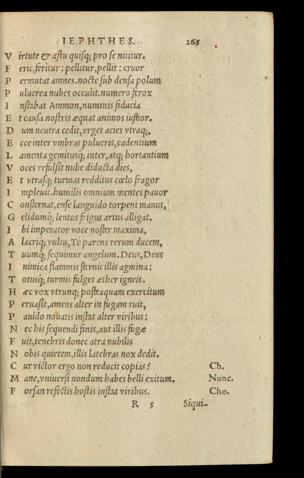 IEPHTHES. 265
V irtute & astu quisq; pro se nititur.
F erit, feritur: pellitur, pellit: cruor
P ermutat amnes. nocte sub densa polum
P uluerea nubes occulit. numero ferox
I nstabat Ammon, numinis fiducia
E t causa nostris æquat animos iustior.
D um neutra cedit, vrget acies vtraq;,
E cce inter vmbras pulueris, cadentium
L amenta gemitusq; inter, atq; hortantium
V oces refulsit nube diducta dies,
E t vtrasq; turmas redditus cœlo fragor
I mpleuit. humilis omnium mentes pauor
C onsternat, ense languido torpent manus,
G elidumq; lentos frigus artus alligat.
I bi imperator voce noster maxima,
A lacriq; vultu, Te parens rerum ducem,
T uumq; sequimur angelum. Deus, Deus
I nimica flammis sternit illis agmina:
T otusq; turmis fulget æther igneis.
H æc vox vtrunq; postquam exercitum
P eruasit, amens alter in fugam ruit,
P auido nouatis instat alter viribus:
N ec his sequendi finis, aut illis fugæ
F uit, tenebris donec atra nubilis
N obis quietem, illis latebras nox dedit.
C ur victor ergo non reducit copias? Ch.
M ane, vniuersi nondum habes belli exitum. Nunc.
F orsan refectis hostis instat viribus. Cho.
R 5 Siqui-